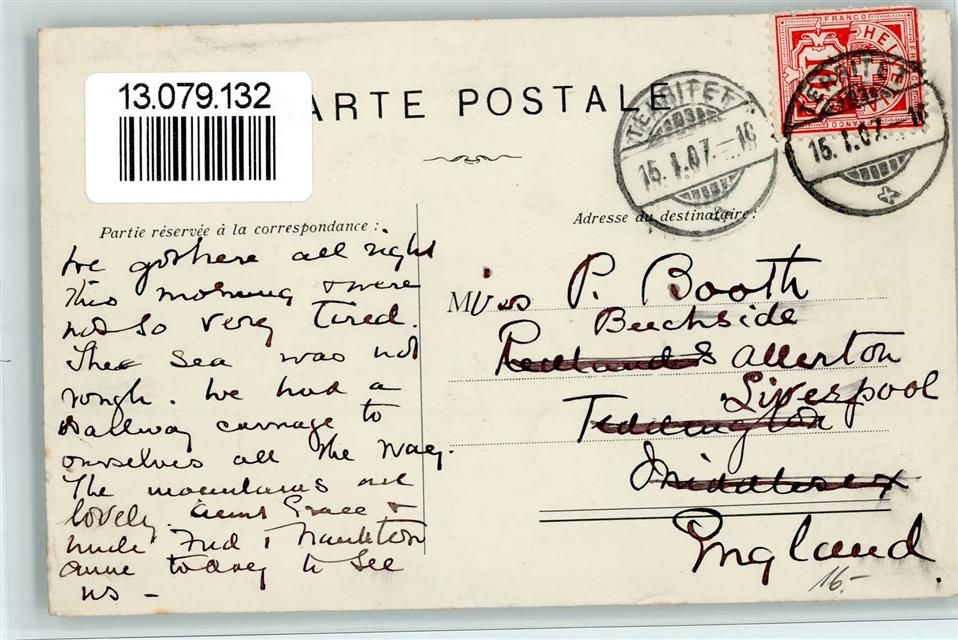 13.079.132
ARTE POSTALE
TERRITET
15.I.07.-18
FRANCO
HELVETIA
10
FRANCO
TERRITET
15.I.07.
Partie réservée à la correspondance :
Adresse du destinataire :
We got here all right
this morning & were
not so very tired.
The sea was not
rough. We had a
railway carriage to
ourselves all the way.
The mountains are
lovely. Aunt Grace &
Uncle Fred &
came today to see
us -
Miss P. Booth
Beechside
Redlands Allerton
Liverpool
Teddington
Middlesex
England
16.-